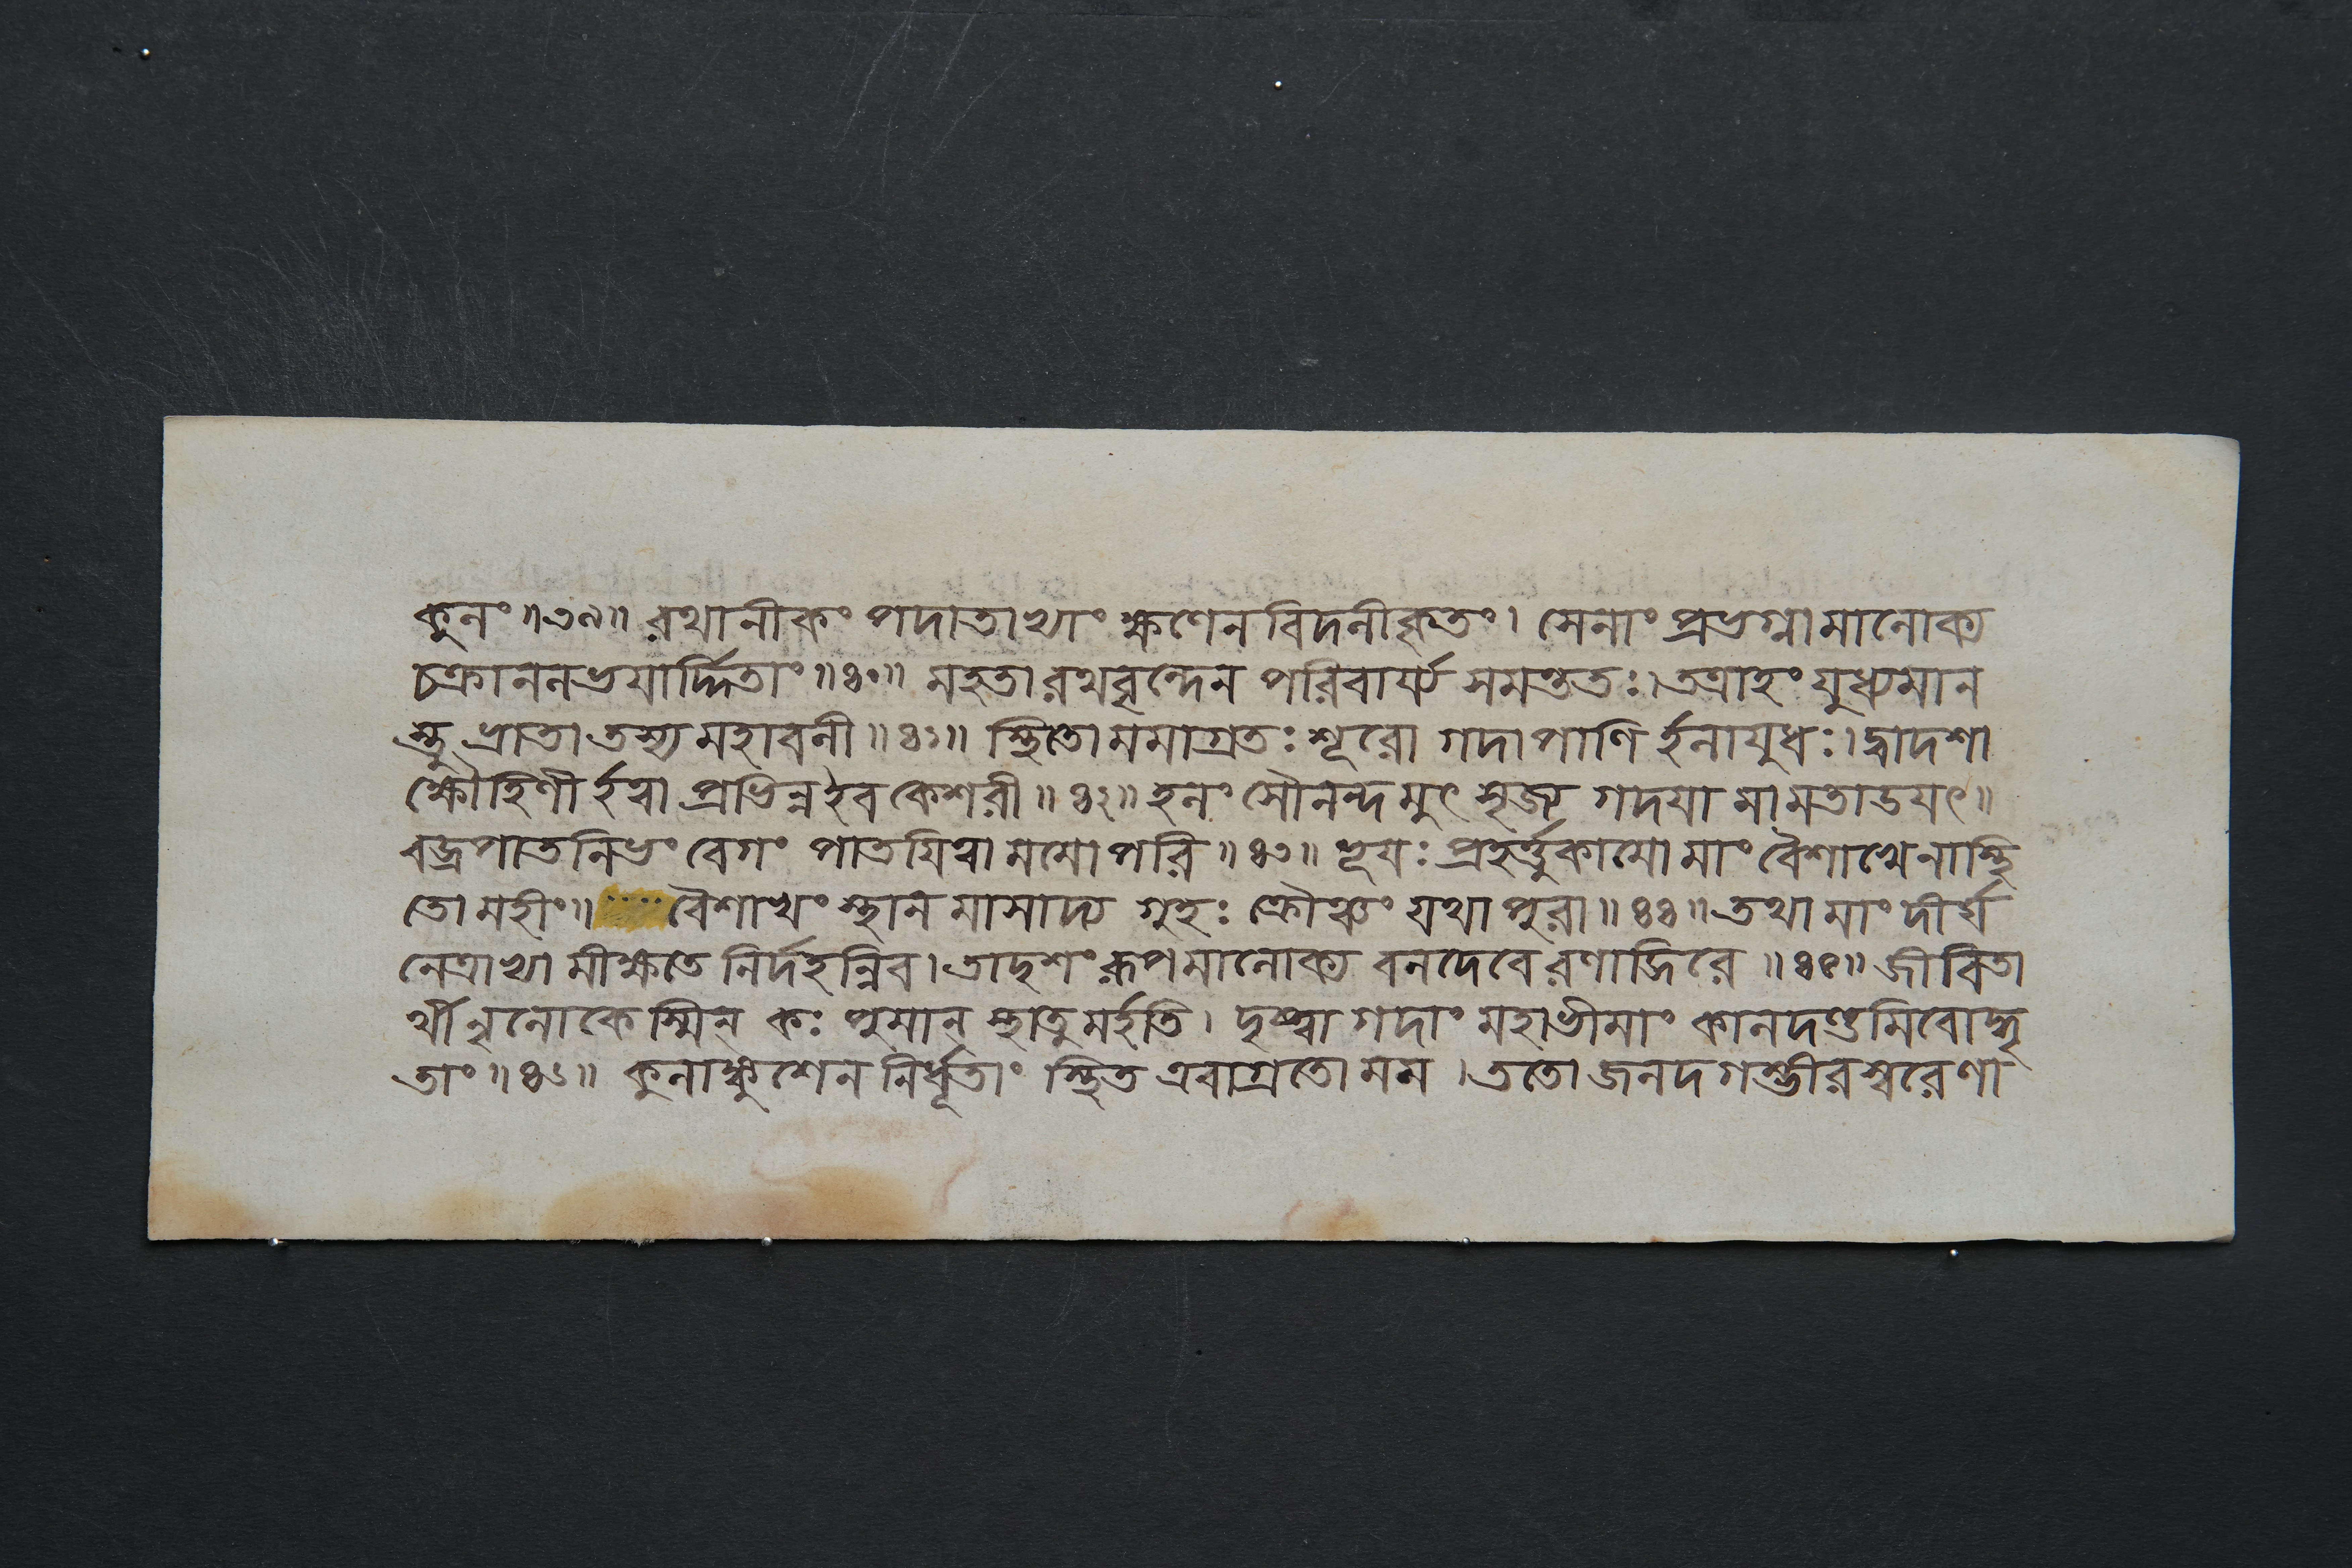 কুলং ॥৩৯॥ রথানীকং পদাতাভ্যাং ক্ষণেন বিদলীকৃতং। সেনাং প্রভগ্নামালোক্য
চক্রাননভয়ার্দ্দিতাং ॥৪০॥ মহতা রথবৃন্দেন পরিবার্য্য সমন্ততঃ। তত্রাহং যুধ্যমান
স্তু ভ্রাতা তস্য মহাবলী ॥৪১॥ স্থিতো মমাগ্রতঃ শূরো গদাপাণির্হলাযুধঃ। দ্বাদশা
ক্ষৌহিণীর্হত্বা প্রভিন্ন ইব কেশরী ॥৪২॥ হলং সৌনন্দমুৎসৃজ্য গদয়া মামতাডয়ৎ॥
বজ্রপাতনিভং বেগং পাতয়িত্বা মমোপরি ॥৪৩॥ ভূয়ঃ প্রহর্ত্তুকামো মাং বৈশাখেনাস্থি
তো মহীং॥ বৈশাখং স্থানমাসাদ্য গুহঃ ক্রৌঞ্চং যথা পুরা ॥৪৪॥ তথা মাং দীর্ঘ
নেত্রাভ্যামীক্ষতে নির্দহন্নিব। তাদৃশং রূপমালোক্য বলদেবে রণাজিরে ॥৪৫॥ জীবিতা
র্থী নৃলোকেস্মিন্ কঃ পুমান্ স্থাতুমর্হতি। দৃষ্ট্বা গদাং মহাভীমাং কালদণ্ডমিবোদ্ধৃ
তাং ॥৪৬॥ কুলাঙ্কুশেন নির্ধূতাং স্থিত এবাগ্রতো মম। ততো জলদগম্ভীরস্বরেণা